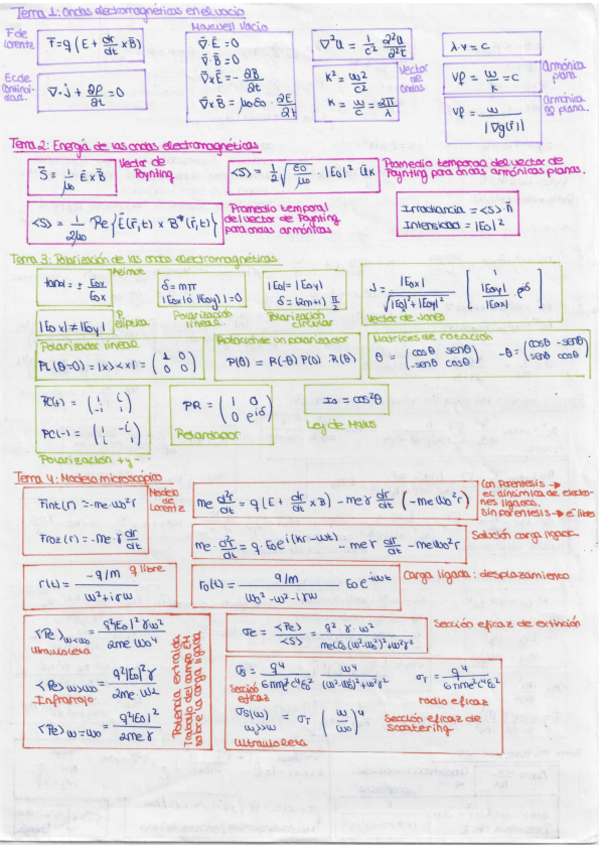 Tema 1: Ondas electromagnéticas en el vacío
F de Lorentz
F̄ = q (E + dr/dt × B)
Ec. de Continuidad.
∇·j + ∂ρ/∂t = 0
Maxwell Vacío
∇·E = 0
∇·B = 0
∇×E = - ∂B/∂t
∇×B = μ₀ε₀ · ∂E/∂t
∇²u = 1/c² ∂²u/∂t²
K² = ω²/c²
K = ω/c = 2π/λ
Vector de ondas
λ·ν = c
vp = ω/k = c
armónica plana
vp = ω/|∇g(r̄)|
armónica no plana.
Tema 2: Energía de las ondas electromagnéticas
S̄ = 1/μ₀ Ē × B̄
Vector de Poynting
<S> = 1/2 √(ε₀/μ₀) · |E₀|² ūk
Promedio temporal del vector de Poynting para ondas armónicas planas.
<S> = 1/2μ₀ Re{Ē(r̄,t) × B*(r̄,t)}
Promedio temporal del vector de Poynting para ondas armónicas
Irradiancia = <S> n̄
Intensidad = |E₀|²
Tema 3: Polarización de las ondas electromagnéticas
tanα = ± E₀y/E₀x
Azimut
δ = mπ
|E₀x| ó |E₀y| = 0
Polarización lineal
|E₀x| = |E₀y|
δ = (2m+1) π/2
Polarización circular
J = |E₀x|/√(|E₀x|² + |E₀y|²) [1, |E₀y|/|E₀x| e^iδ]
Vector de Jones
|E₀x| ≠ |E₀y|
P. elíptica
Polarizador lineal
PL (θ=0) = |x><x| = (1 0 / 0 0)
Rotación de un polarizador
P(θ) = R(-θ) P(0) R(θ)
Matrices de rotación
θ = (cosθ senθ / -senθ cosθ)
-θ = (cosθ -senθ / senθ cosθ)
PC(+) = (1 i / -i 1)
PC(-) = (1 -i / i 1)
Polarización + y -
PR = (1 0 / 0 e^iδ)
Retardador
Iθ = cos²θ
Ley de Malus
Tema 4: Modelo microscópico
Fint(r) = -me·ω₀²r
Froz(r) = -me·γ dr/dt
Modelo de Lorentz
me d²r/dt = q (E + dr/dt × B) - meγ dr/dt (-meω₀²r)
Con parentesis → ec. dinámica de electrones ligados.
Sin parentesis → e⁻ libres
me · d²r/dt = q·E₀ e^i(kr-ωt) - meγ dr/dt - meω₀²r
Solución carga ligada
r(t) = -q/m / ω²+iγω
q libre
r₀(t) = q/m / ω₀²-ω²-iγω E₀ e^-iωt
Carga ligada: desplazamiento
<Pe> ω<ω₀ = q²|E₀|²γω²/2meω₀⁴
Ultravioleta
<Pe> ω>ω₀ = q²|E₀|²γ/2me·ω²
Infrarrojo
<Pe> ω=ω₀ = q²|E₀|²/2meγ
Potencia extraída
Trabajo del campo EM sobre la carga ligada
σe = <Pe>/<S> = q²·γ·ω²/meCε₀ (ω²-ω₀²)²+ω²γ²
Sección eficaz de extinción
σs = q⁴/6πme²c⁴ε₀² ω⁴/(ω²-ω₀²)²+ω²γ²
Sección eficaz
σT = q⁴/6πme²c⁴ε₀²
radio eficaz
σs(ω) ω₀>>ω = σT (ω/ω₀)⁴
Ultravioleta
Sección eficaz de Scattering